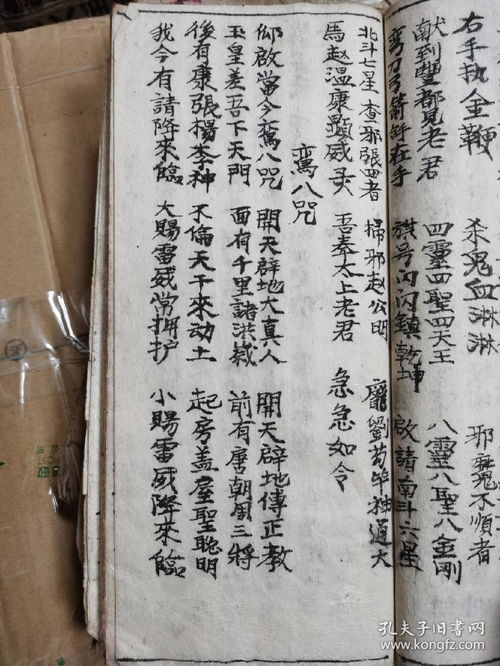 右手执金鞭 杀鬼血淋淋 邪魔不順者
献到酆都見老君 四靈四聖四天王 八靈八聖八金剛
弯刀弓箭斜在手 旗号闪闪鎮乾坤 啟請南斗六星
北斗七星 查邪張四者 掃邪赵公明 龐劉苟毕 通大
馬赵温康顯威灵 吾奉太上老君 急急如令
鸾八咒
仰啟當今鸾八咒 開天辟地大真人 開天辟地傳正教
玉皇差吾下天門 面有千里諸洪 前有唐朝周三將
後有康張楊李神 不倫天干來动土 起房盖屋聖聰明
我今有請降來臨 大赐雷威常拥护 小赐雷威降來臨
孔夫子旧书网
www.kongfz.com